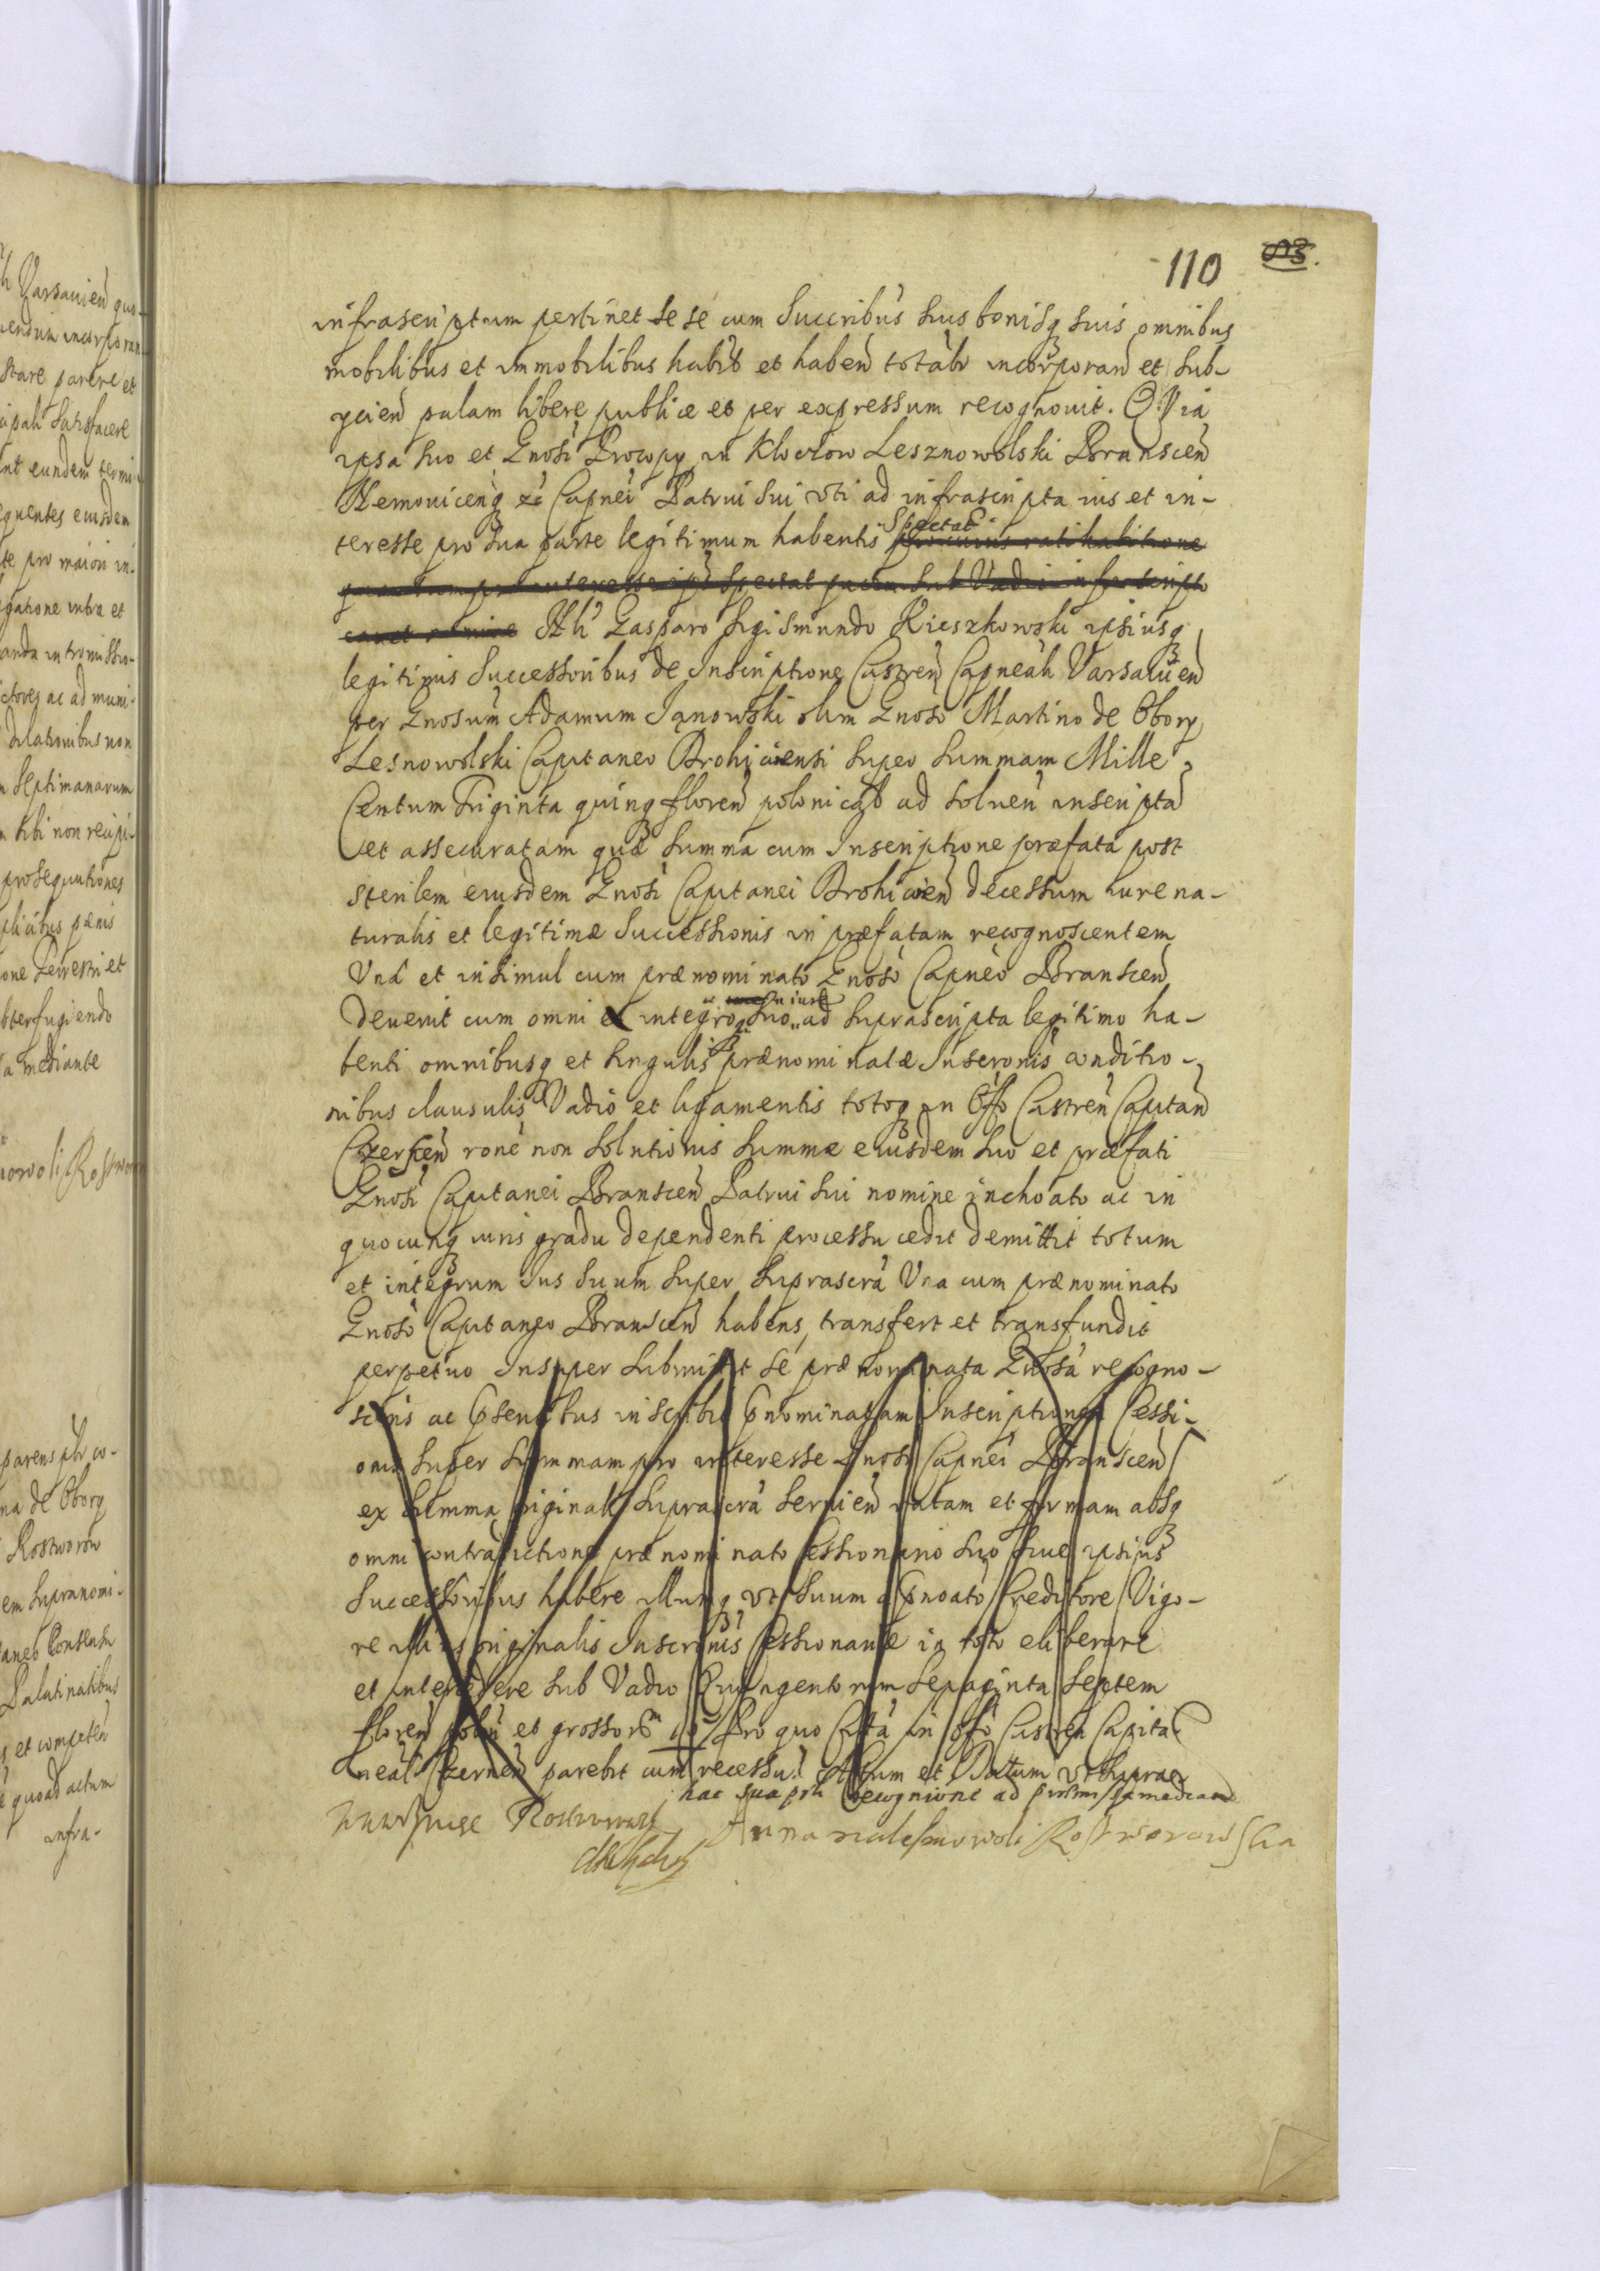 110
infrascriptum pertinet se se cum Succribus suis bonisq suis omnibus
mobilibus et immobilibus habit et haben totalr incorporan et sub-
ycien palam libere publice et per expressum recognouit. Quia
ipsa suo et Gnosi Procopy in Kloczow Lesznowolski Branscen
Niemouicenq zc Capnei Patrui sui vti ad infrascripta ius et in-
teresse pro sua parte legitimum habentis Spectat
Gasparo Sigismundo Kieszkowski ipsiusq
legitimis Successoribus de Inscriptione Castren Capneali Varsauien
per Gnosum Adamum Janowski olim Gnoso Martino de Obory
Lesnowolski Capitaneo Drohiciensi super summam Mille
Centum Triginta quinq floren polonicalr ad soluen inscripta
et assecuratam quæ summa cum Inscriptione præfata post
sterilem eiusdem Gnosi Capitanei Drohicien decessum iure na-
turalis et legitimæ Successionis in præfatam recognoscentem
Vna et insimul cum prænominato Gnoso Capneo Branscen
deuenit cum omni et integro suo iure ad suprascripta legitimo ha-
benti omnibusq et singulis prænominatæ Inscronis conditio-
nibus clausulis Vadio et ligamentis totoq in Offo Castren Capitan
Czerscen rone non solutionis summæ eiusdem suo et præfati
Gnosi Capitanei Branscen Patrui sui nomine inchoato ac in
quocunq iuris gradu dependenti processu cedit demittit totum
et integrum ius suum super suprascra Vna cum prænominato
Gnoso Capitaneo Branscen habens transfert et transfundit
perpetuo Insuper submittit se prænominata Gnosa recogno-
scens ac psentibus inscribit pnominatam Inscriptionem Cessi-
onis super summam pro interesse Gnosi Capnei Branscen
ex summa originali suprascra seruien ratam et firmam absq
omni contradictione prænominato Cessionario suo siue ipsius
Successoribus habere illumq vt suum a pnoato Creditore Vigo-
re illius originalis Inscronis Cessionariæ in toto eliberare
et intercedere sub Vadio Quingentorum sexaginta septem
floren polon et grossor 15 pro quo Cita in offo Castren Capita
neali Czernen parebit cum recessu. Actum et Datum vt supra
hac sua pnti recognitione ad præmissa mediante
Anna z Lesnowoli Rostworowska